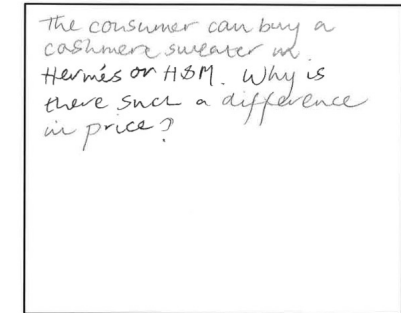 The consumer can buy a
cashmere sweater in
Hermés or H&M. Why is
there such a difference
in price?